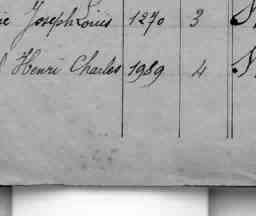 Joseph Louis 1270 3
Henri Charles 1989 4